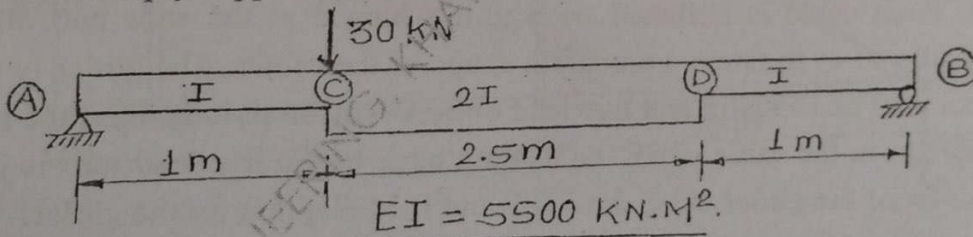 30 KN
A I C 2I D I B
1m 2.5m 1m
EI = 5500 KN.M².